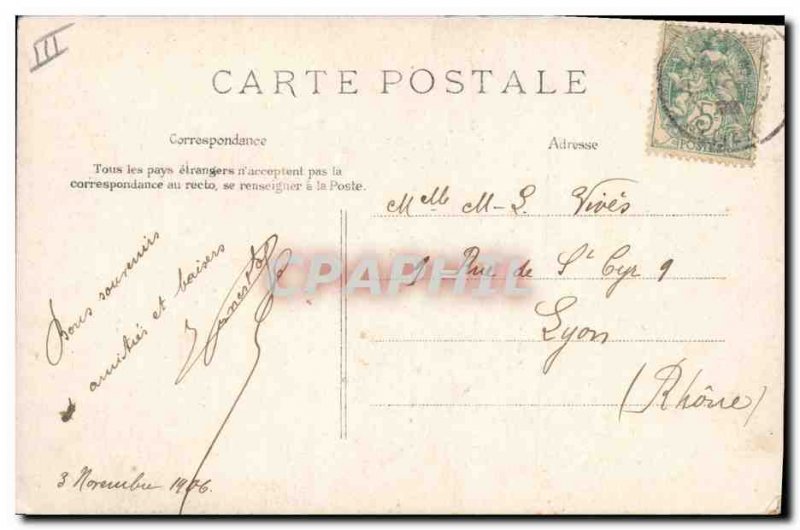 III
CARTE POSTALE
Correspondance
Adresse
Tous les pays étrangers n'acceptent pas la
correspondance au recto, se renseigner à la Poste.
5
POSTES
Melle M-L. Vivés
9 Rue de St Cyr 9
Lyon
(Rhône)
Bons souvenirs
amitiés et baisers
3 Novembre 1906.
CPAPHIL